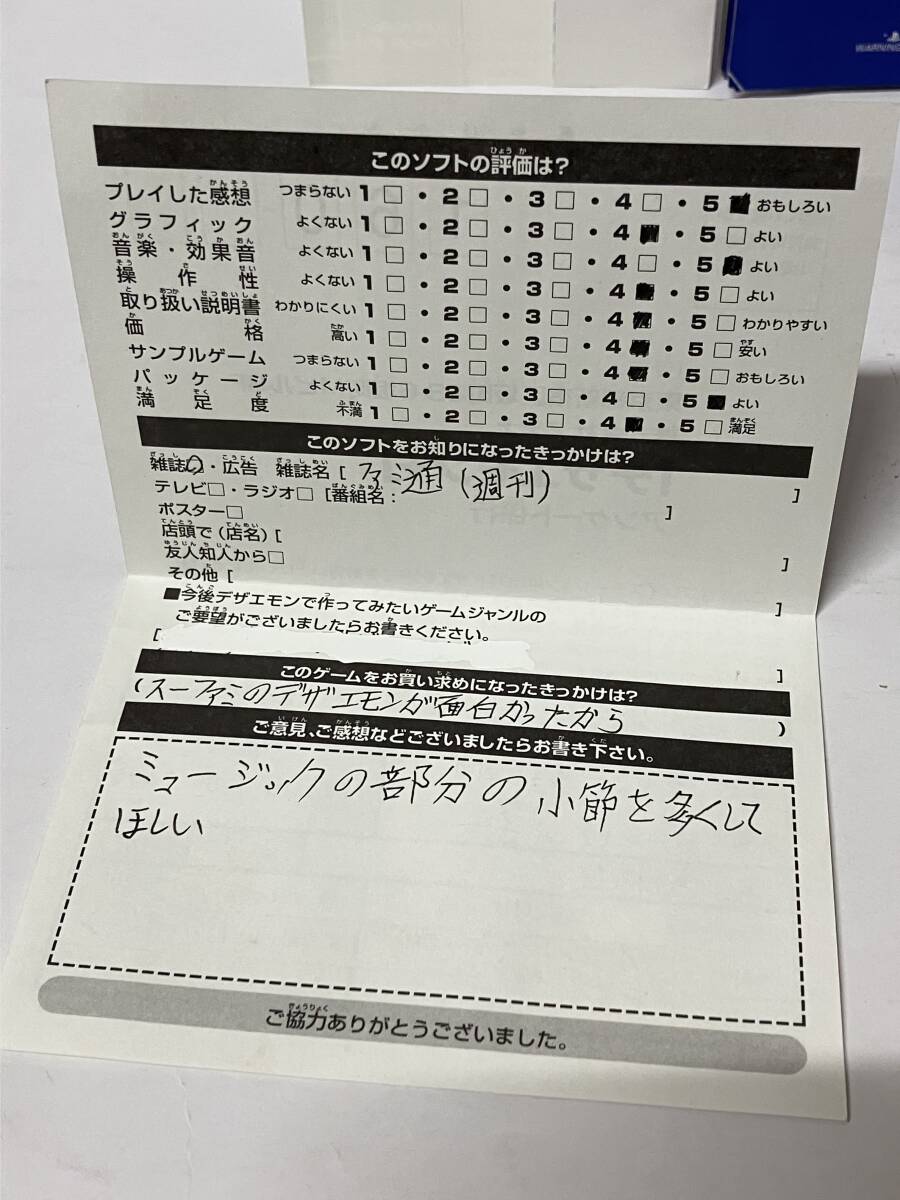 WARNING
このソフトの評価は?
プレイした感想 つまらない 1 □ ・ 2 □ ・ 3 □ ・ 4 □ ・ 5 ■ おもしろい
グラフィック よくない 1 □ ・ 2 □ ・ 3 □ ・ 4 ■ ・ 5 □ よい
音楽・効果音 よくない 1 □ ・ 2 □ ・ 3 □ ・ 4 □ ・ 5 ■ よい
操作性 よくない 1 □ ・ 2 □ ・ 3 □ ・ 4 ■ ・ 5 □ よい
取り扱い説明書 わかりにくい 1 □ ・ 2 □ ・ 3 □ ・ 4 ■ ・ 5 □ わかりやすい
価格 高い 1 □ ・ 2 □ ・ 3 □ ・ 4 ■ ・ 5 □ 安い
サンプルゲーム つまらない 1 □ ・ 2 □ ・ 3 □ ・ 4 ■ ・ 5 □ おもしろい
パッケージ よくない 1 □ ・ 2 □ ・ 3 □ ・ 4 □ ・ 5 ■ よい
満足度 不満 1 □ ・ 2 □ ・ 3 □ ・ 4 ■ ・ 5 □ 満足
このソフトをお知りになったきっかけは?
雑誌・広告 雑誌名 [ ファミ通(週刊) ]
テレビ□・ラジオ□ [番組名: ]
ポスター□
店頭で(店名) [ ]
友人知人から□
その他 [ ]
■今後デザエモンで作ってみたいゲームジャンルの
ご要望がございましたらお書きください。
[ ]
このゲームをお買い求めになったきっかけは?
(スーファミのデザエモンが面白かったから )
ご意見、ご感想などございましたらお書き下さい。
ミュージックの部分の小節を多くして
ほしい
ご協力ありがとうございました。